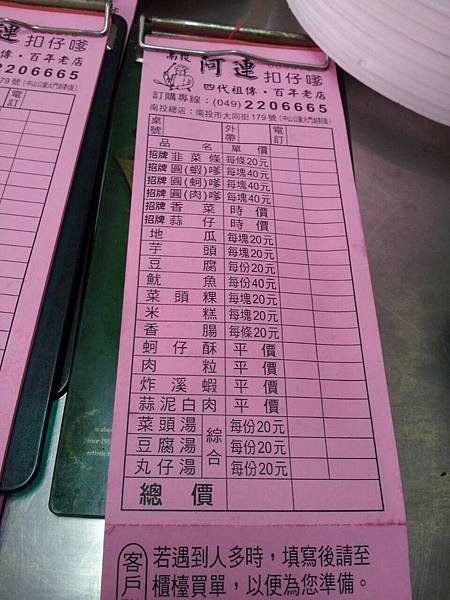 南投 阿連 扣仔嗲
四代祖傳・百年老店
訂購專線：(049) 2206665
南投總店：南投市大同街179號(中山公園大門斜對面)
桌號 外帶 電訂
品名 單價
招牌 韭菜條 每條20元
招牌 圓(蝦)嗲 每塊40元
招牌 圓(蚵)嗲 每塊40元
招牌 圓(肉)嗲 每塊40元
招牌 香菜 時價
招牌 蒜仔 時價
地瓜 每塊20元
芋頭 每塊20元
豆腐 每份20元
魷魚 每份40元
菜頭粿 每塊20元
米糕 每塊20元
香腸 每條20元
蚵仔酥 平價
肉粒 平價
炸溪蝦 平價
蒜泥白肉 平價
菜頭湯 綜合 每份20元
豆腐湯 每份20元
丸仔湯 每份20元
總價
客戶
若遇到人多時，填寫後請至
櫃檯買單，以便為您準備。
連 扣仔嗲
傳・百年老店
2206665
79號(中山公園大門斜對面)
電訂